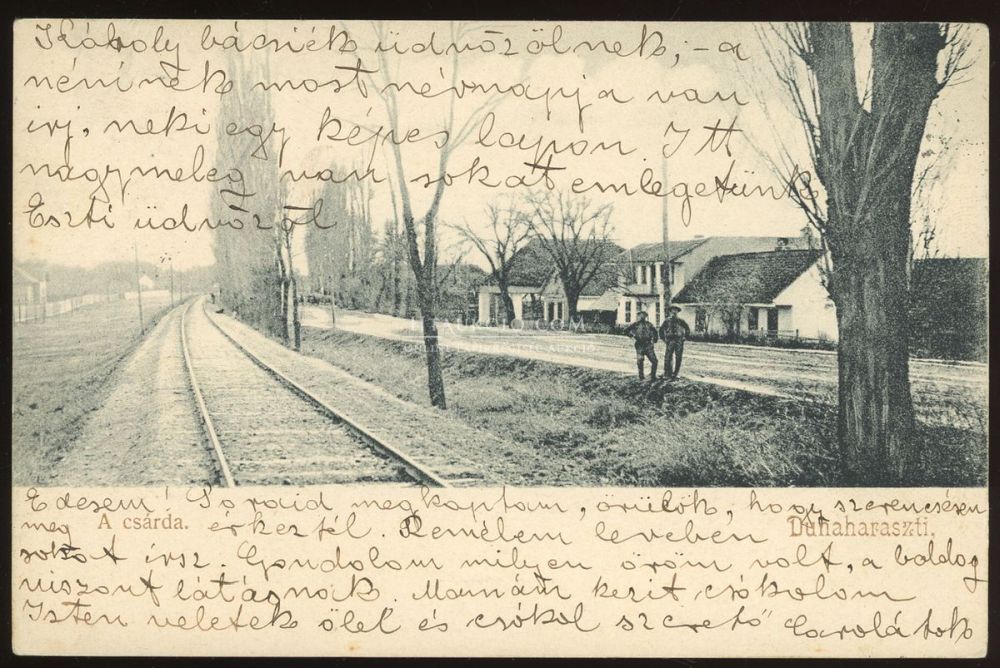 Károly bácsiék üdvözölnek, - a
néninek most névnapja van
irj, neki egy képes lapon. Itt
nagymeleg van sokat emlegetünk
Eszti üdvözöl
Edesem! Soraid megkaptam, örülök, hogy szerencsésen
meg érkeztél. Remélem leveben
A csárda.
Dunaharaszti.
sokat irsz. Gondolom milyen öröm volt, a boldog
viszont látásnak. Mamám kezit csókolom
Isten veletek ölel és csókol szerető Carolátok